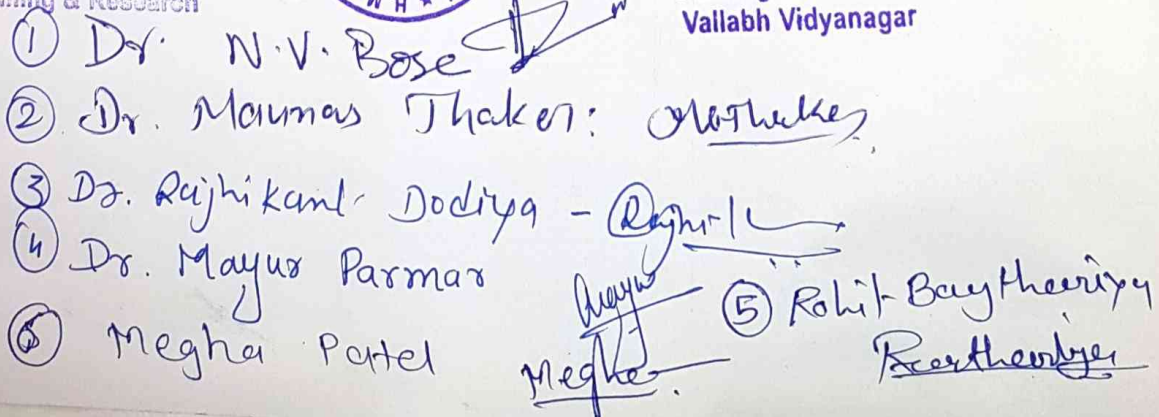 & Research
W H
Vallabh Vidyanagar
① Dr. N.V. Bose
② Dr. Maunas Thaker:
③ Dr. Rajnikant Dodiya -
④ Dr. Mayur Parmar
⑤ Rohit
⑥ Megha Patel Megha